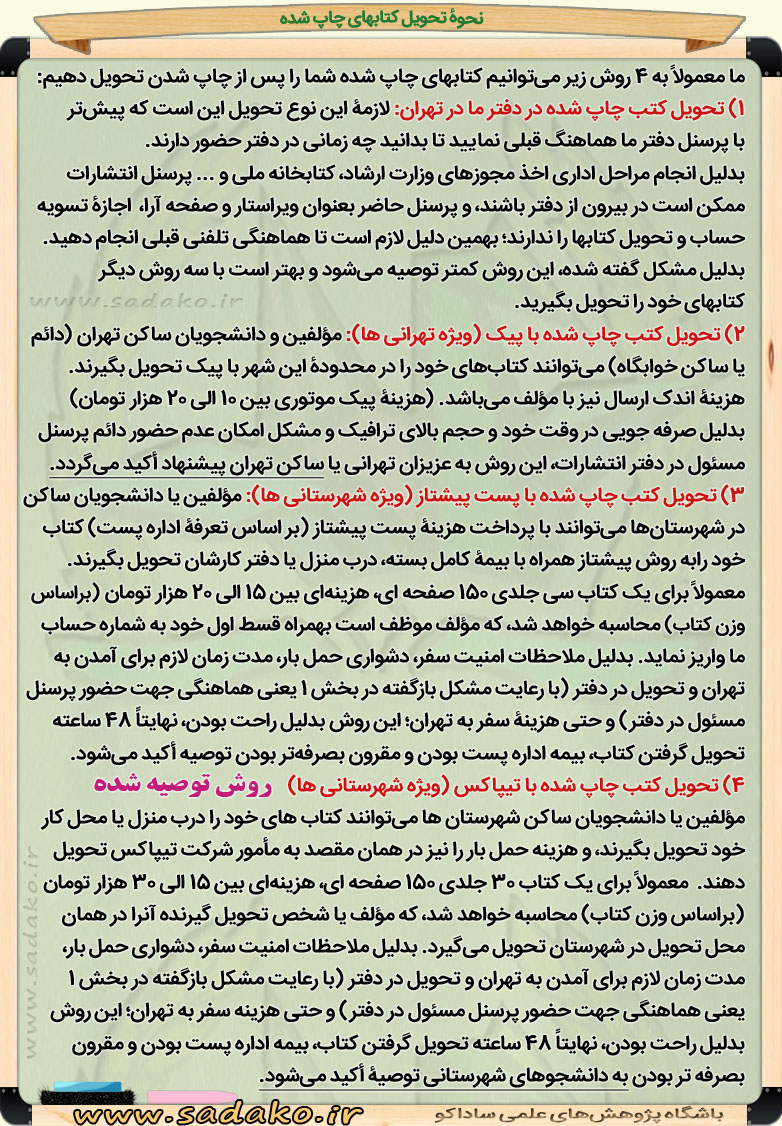 نحوهٔ تحویل کتابهای چاپ شده
ما معمولاً به ۴ روش زیر می‌توانیم کتابهای چاپ شده شما را پس از چاپ شدن تحویل دهیم:
۱) تحویل کتب چاپ شده در دفتر ما در تهران: لازمهٔ این نوع تحویل این است که پیش‌تر
با پرسنل دفتر ما هماهنگ قبلی نمایید تا بدانید چه زمانی در دفتر حضور دارند.
بدلیل انجام مراحل اداری اخذ مجوزهای وزارت ارشاد، کتابخانه ملی و ... پرسنل انتشارات
ممکن است در بیرون از دفتر باشند، و پرسنل حاضر بعنوان ویراستار و صفحه آرا، اجازهٔ تسویه
حساب و تحویل کتابها را ندارند؛ بهمین دلیل لازم است تا هماهنگی تلفنی قبلی انجام دهید.
بدلیل مشکل گفته شده، این روش کمتر توصیه می‌شود و بهتر است با سه روش دیگر
کتابهای خود را تحویل بگیرید.
www.sadako.ir
۲) تحویل کتب چاپ شده با پیک (ویژه تهرانی ها): مؤلفین و دانشجویان ساکن تهران (دائم
یا ساکن خوابگاه) می‌توانند کتاب‌های خود را در محدودهٔ این شهر با پیک تحویل بگیرند.
هزینهٔ اندک ارسال نیز با مؤلف می‌باشد. (هزینهٔ پیک موتوری بین ۱۰ الی ۲۰ هزار تومان)
بدلیل صرفه جویی در وقت خود و حجم بالای ترافیک و مشکل امکان عدم حضور دائم پرسنل
مسئول در دفتر انتشارات، این روش به عزیزان تهرانی یا ساکن تهران پیشنهاد أکید می‌گردد.
۳) تحویل کتب چاپ شده با پست پیشتاز (ویژه شهرستانی ها): مؤلفین یا دانشجویان ساکن
در شهرستان‌ها می‌توانند با پرداخت هزینهٔ پست پیشتاز (بر اساس تعرفهٔ اداره پست) کتاب
خود رابه روش پیشتاز همراه با بیمهٔ کامل بسته، درب منزل یا دفتر کارشان تحویل بگیرند.
معمولاً برای یک کتاب سی جلدی ۱۵۰ صفحه ای، هزینه‌ای بین ۱۵ الی ۲۰ هزار تومان (براساس
وزن کتاب) محاسبه خواهد شد، که مؤلف موظف است بهمراه قسط اول خود به شماره حساب
ما واریز نماید. بدلیل ملاحظات امنیت سفر، دشواری حمل بار، مدت زمان لازم برای آمدن به
تهران و تحویل در دفتر (با رعایت مشکل بازگفته در بخش ۱ یعنی هماهنگی جهت حضور پرسنل
مسئول در دفتر) و حتی هزینهٔ سفر به تهران؛ این روش بدلیل راحت بودن، نهایتاً ۴۸ ساعته
تحویل گرفتن کتاب، بیمه اداره پست بودن و مقرون بصرفه‌تر بودن توصیه أکید می‌شود.
۴) تحویل کتب چاپ شده با تیپاکس (ویژه شهرستانی ها) روش توصیه شده
مؤلفین یا دانشجویان ساکن شهرستان ها می‌توانند کتاب های خود را درب منزل یا محل کار
خود تحویل بگیرند، و هزینه حمل بار را نیز در همان مقصد به مأمور شرکت تیپاکس تحویل
دهند. معمولاً برای یک کتاب ۳۰ جلدی ۱۵۰ صفحه ای، هزینه‌ای بین ۱۵ الی ۳۰ هزار تومان
(براساس وزن کتاب) محاسبه خواهد شد، که مؤلف یا شخص تحویل گیرنده آنرا در همان
محل تحویل در شهرستان تحویل می‌گیرد. بدلیل ملاحظات امنیت سفر، دشواری حمل بار،
مدت زمان لازم برای آمدن به تهران و تحویل در دفتر (با رعایت مشکل بازگفته در بخش ۱
یعنی هماهنگی جهت حضور پرسنل مسئول در دفتر) و حتی هزینه سفر به تهران؛ این روش
بدلیل راحت بودن، نهایتاً ۴۸ ساعته تحویل گرفتن کتاب، بیمه اداره پست بودن و مقرون
بصرفه تر بودن به دانشجوهای شهرستانی توصیهٔ أکید می‌شود.
www.sadako.ir
باشگاه پژوهش‌های علمی ساداکو
www.sadako.ir